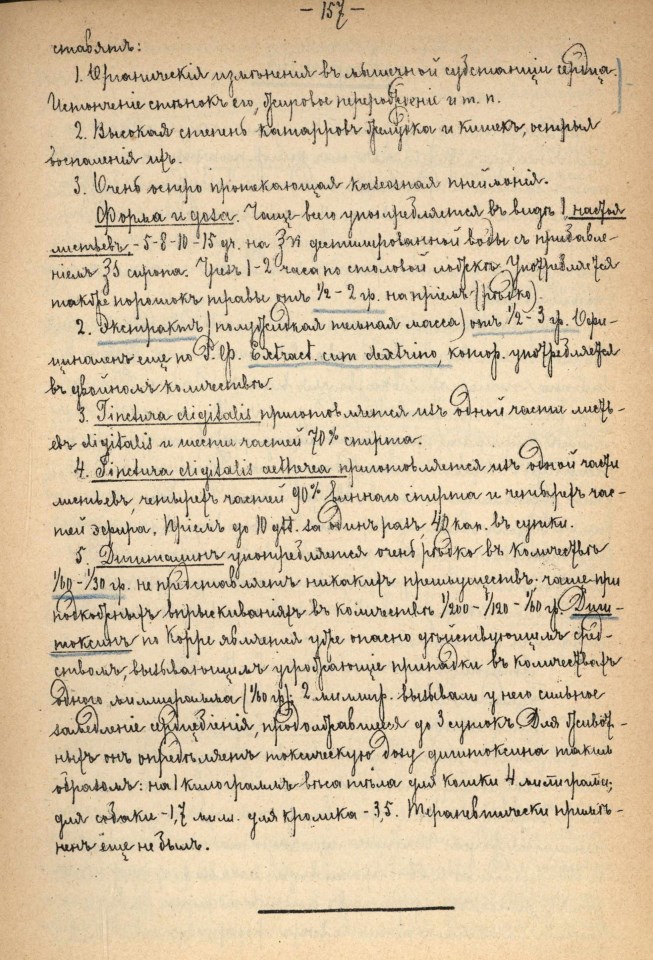 — 157 —
ставятъ:
1. Органическія измѣненія въ мышечной субстанціи сердца.
Истонченіе стѣнокъ его, жировое перерожденіе и т. п.
2. Высокая степень катарровъ желудка и кишекъ, острыя
воспаленія ихъ.
3. Очень остро протекающая казеозная пнеймонія.
Форма и доза. Чаще всего употребляется въ видѣ 1, настоя
листьевъ, -5-8-10-15 gr. на ℥vi дестилированной воды съ прибавле-
ніемъ ℥j сиропа. Чрезъ 1-2 часа по столовой ложкѣ. Употребляется
также порошокъ травы отъ ½ - 2 гр. на пріемъ (рѣдко).
2. Экстрактъ (полужидкая темная масса) отъ ½ - 3 гр. Офи-
циналенъ еще по Р. Ф. Extract. cum dextrino, котор. употребляется
въ двойномъ количествѣ.
3. Tinctura digitalis приготовляется изъ одной части листь-
евъ digitalis и шести частей 70% спирта.
4. Tinctura digitalis aetherea приготовляется изъ одной части
листьевъ, четырехъ частей 90% виннаго спирта и четырехъ час-
тей эфира. Пріемъ до 10 gtt. за одинъ разъ, 40 кап. въ сутки.
5. Дигиталинъ употребляется очень рѣдко въ количествѣ
1/60 - 1/30 гр. не представляетъ никакихъ преимуществъ. чаще при
подкожныхъ впрыскиваніяхъ въ количествѣ 1/200 - 1/120 - 1/60 гр. Диги-
токсинъ по Коррe является уже опасно дѣйствующимъ сред-
ствомъ, вызывающимъ угрожающіе припадки въ количествахъ
одного миллиграмма (1/60 гр); 2 миллигр. вызывали у него сильное
замедленіе сердцебіенія, продолжавшееся до 3 сутокъ. Для живот-
ныхъ онъ опредѣляетъ токсическую дозу дигитоксина такимъ
образомъ: на 1 килограммъ вѣса тѣла для кошки 4 милиграмм;
для собаки - 1,7 мил. для кролика - 3,5. Терапевтически примѣ-
ненъ еще не былъ.